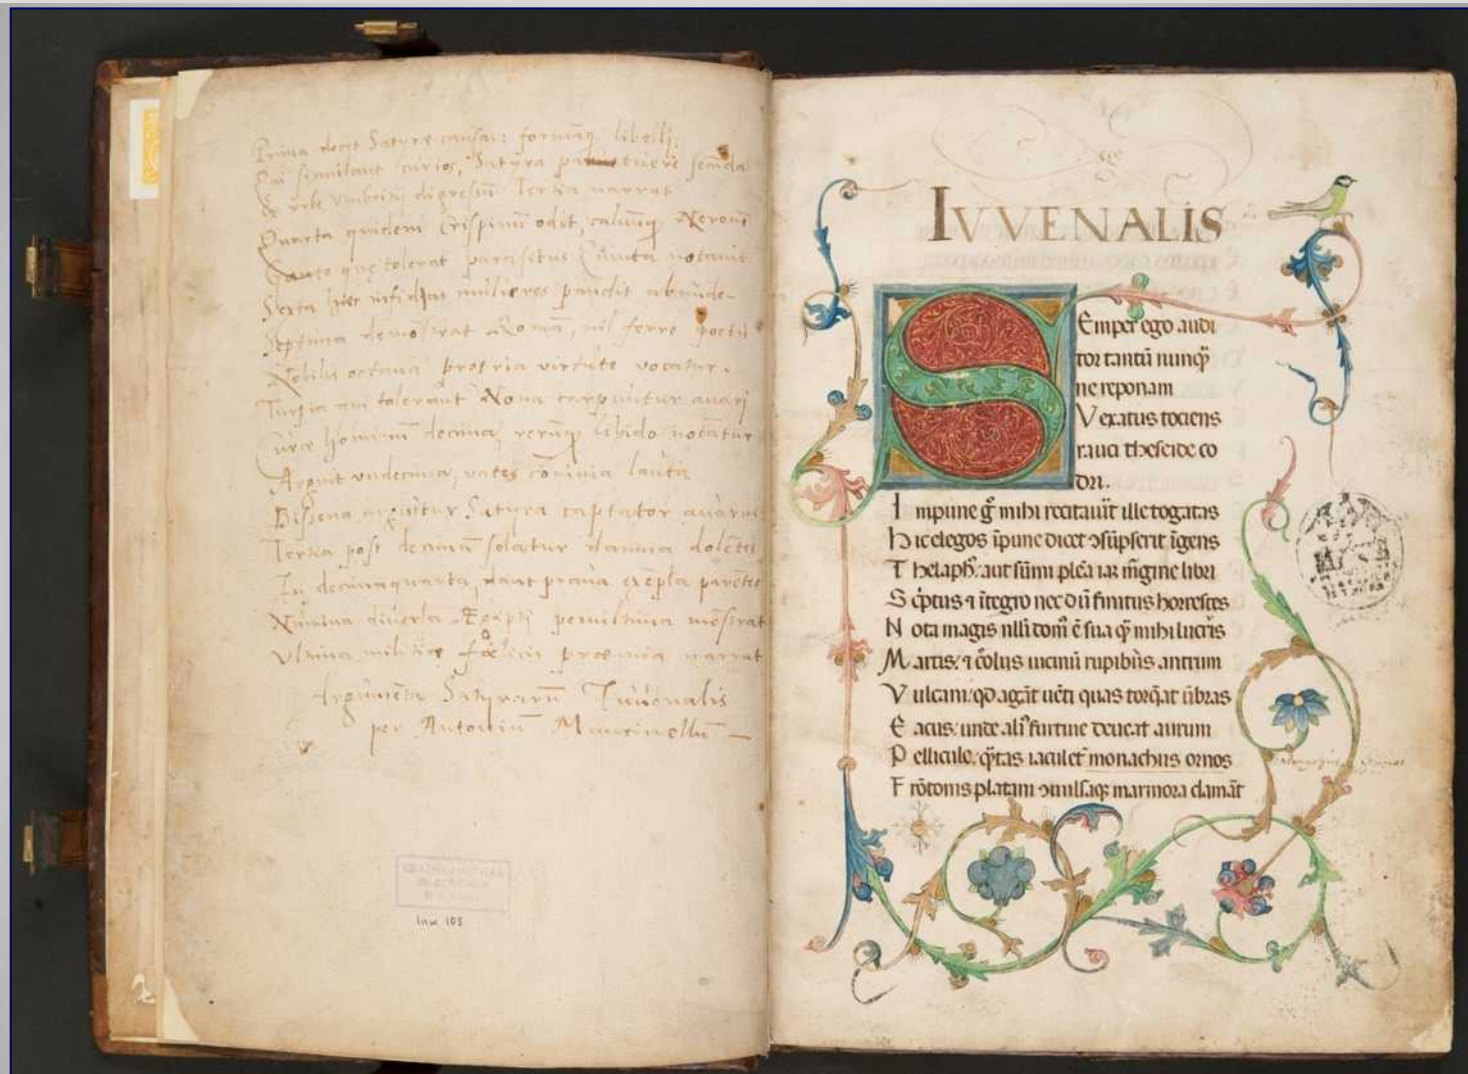 Prima docet Satyrae causas: formāq libelli.
Qui simulant curios, Satyra tuere secūda
Ex urbe Vmbritij digressū Tertia narrat
Quarta quidem Crispinū odit, caluūq Neronē
quę tolerat parasitus Quinta notauit
Sexta hęc mulieres pandit abunde
Septima demōstrat Romā, nil ferre poetis
Nobilis octaua propria virtute vocatur.
Turpia qui tolerāut Nona carpūtur auari
Curæ hominū decima, rerūq libido notātur
Arguit vndecima, vates cōuiuia lauta
Bissena arguitur Satyra captator auarus
Tertia post decimā solatur damna dolētis
In decimaquarta, dant praua exēpla parētes
Numina diuersa Ægipti penultima mōstrat
Vltima militię fœlicis præmia narrat
Argumēta Satyrarū Iuuenalis
per Antoniū Mancinellū
Inw 105
IVVENALIS
Semper ego audi
tor tantū nunq̄
ne reponam
Vexatus tociens
rauci theseide co
dri.
Impune g̊ mihi recitauīt ille togatas
Hic elegos īpune dicet ɔsūpserit īgens
Thelaphꝰ aut sūmi plēa iā m̄gine libri
Scͥptus ⁊ ī tergo nec dū finitus horrestes
Nota magis nlli domꝰ ē sua q̄ mihi lucꝰis
Martis: ⁊ ēolus uicinū rupibus antrum
Vulcani: qd agāt uēti quas torq̄at ūbras
Eacus: unde aliꝰ furtiue deueat aurum
Pellicule: q̄tas iaculet᷑ monachus ornos
Frōtonis platani ɔuulsaq; marmora clamāt